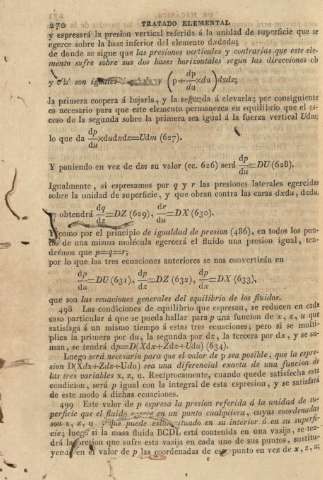 270 TRATADO ELEMENTAL
y espresará la presion vertical referida á la unidad de superficie que se
egerce sobre la base inferior del elemento dzdudx;
de donde se sigue que las presiones verticales y contrarias que este ele-
mento sufre sobre sus dos bases horizontales segun las direcciones cb
y c'b' son iguales (p+dp/du×du)dxdz;
la primera coopera á bajarla, y la segunda á elevarla; por consiguiente
es necesario para que este elemento permanezca en equilibrio que el es-
ceso de la segunda sobre la primera sea igual á la fuerza vertical Udm;
lo que da dp/du×dudxdz=Udm (627).
Y poniendo en vez de dm su valor (ec. 626) será dp/du=DU (628).
Igualmente, si espresamos por q y r las presiones laterales egercidas
sobre la unidad de superficie, y que obran contra las caras dxdu, dzdu,
se obtendrá dq/dz=DZ (629), dr/dx=DX (630).
Y como por el principio de igualdad de presion (486), en todos los pun-
tos de una misma molécula egercerá el fluido una presion igual, ten-
drémos que p=q=r;
por lo que las tres ecuaciones anteriores se nos convertirán en
dp/du=DU (631), dp/dz=DZ (632), dp/dx=DX (633),
que son las ecuaciones generales del equilibrio de los fluidos.
498 Las condiciones de equilibrio que expresan, se reducen en cada
caso particular á que se pueda hallar para p una funcion de x, z, u que
satisfaga á un mismo tiempo á estas tres ecuaciones; pero si se multi-
plica la primera por du, la segunda por dz, la tercera por dx, y se su-
man, se tendrá dp=D(Xdx+Zdz+Udu) (634).
Luego será necesario para que el valor de p sea posible, que la expre-
sion D(Xdx+Zdz+Udu) sea una diferencial exacta de una funcion de
las tres variables x, z, u. Recíprocamente, cuando quede satisfecha esta
condicion, será p igual con la integral de esta expresion, y se satisfará
de este modo á dichas ecuaciones.
499 Este valor de p expresa la presion referida á la unidad de su-
perficie que el fluido egerce en un punto cualquiera, cuyas coordenadas
son x, z, u y que puede estar situado en su interior ó en su superfi-
cie; luego si la masa fluida BCDL está contenida en una vasija, se ten-
drá la presion que sufre esta vasija en cada uno de sus puntos, sustitu-
yendo en el valor de p las coordenadas de este punto en vez de x, z, u;